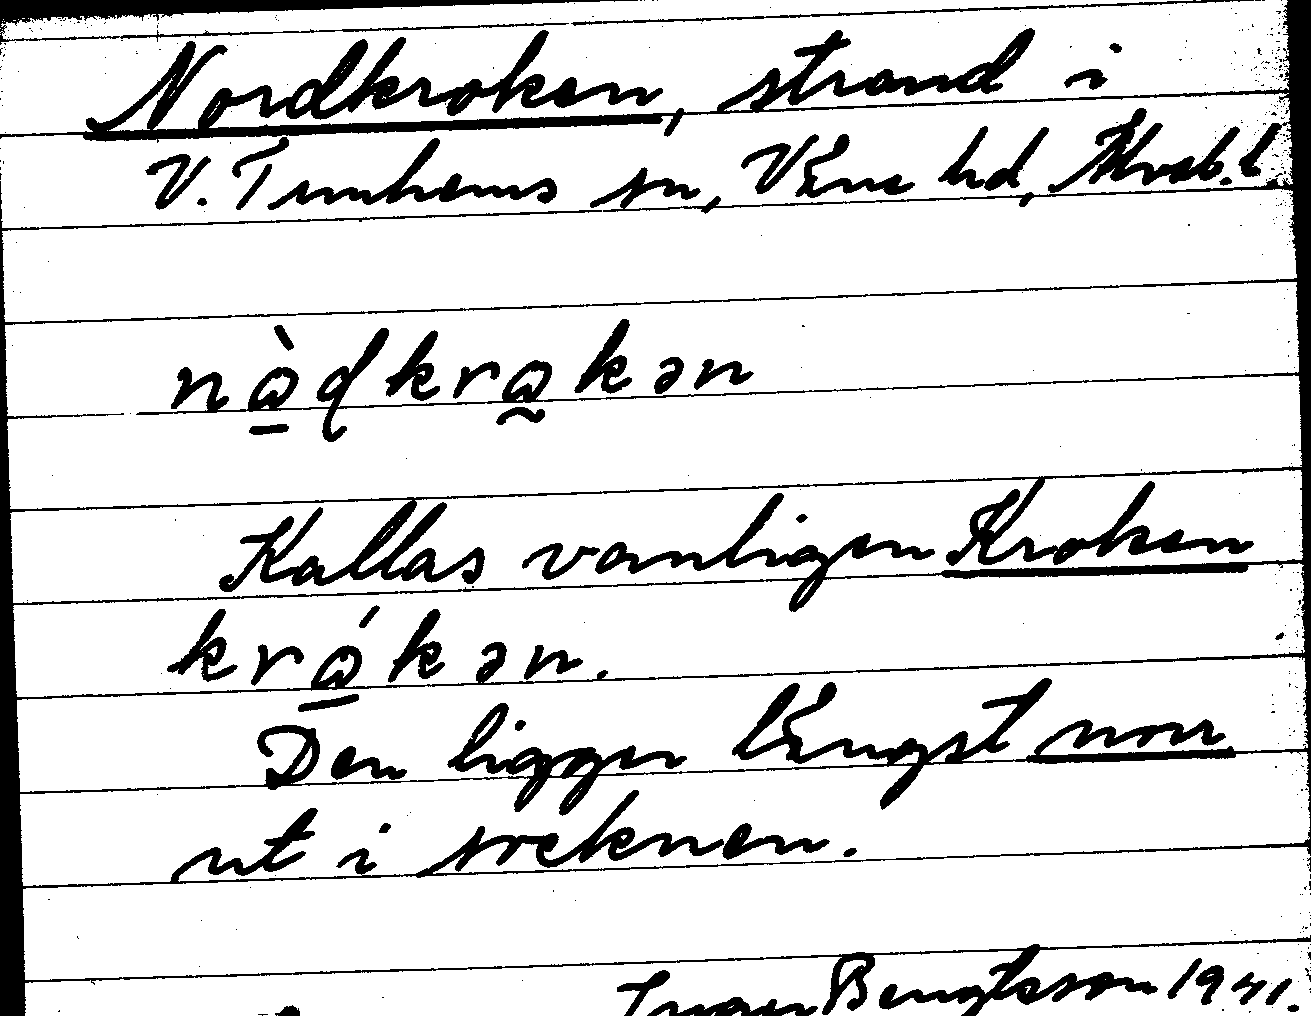 Nordkroken, strand i
V. Tunhems sn, Väne hd, Älvsb. l.
nò̱dkro̰kən
Kallas vanligen Kroken
kró̱kən.
Den ligger längst norr
ut i socknen.
Inger Bengtsson 1941.